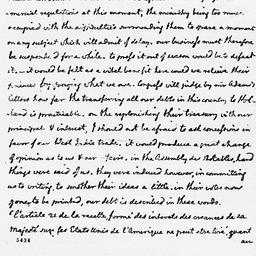 mercial regulations at this moment, the ministry being too much
occupied with the difficulties surrounding them to spare a moment
on any subject which will admit of delay. our business must therefore
be suspended for a while. to press it out of season would be to defeat
it. it would be felt as a vital benefit here could we relieve their
by paying what we owe. Congress will judge by mr Adams's
letters how far the transferring all our debts in this country to Hol-
land is practicable. on the replenishing their treasury with our
principal & interest, I should not be afraid to ask concessions in
favor of our West India trade. it would produce a great change
of opinion as to us & our affairs. in the Assembly des Notables, hard
things were said of us. they were induced however, in committing
us to writing, to smother their ideas a little. in their votes now
gone to be printed, our debt is described in these words.
'L'article 21. de la recette, formé des interets des creances de sa
majesté sur les Etats Unis de l'Amerique ne peut etre tiré, quant
au
5424